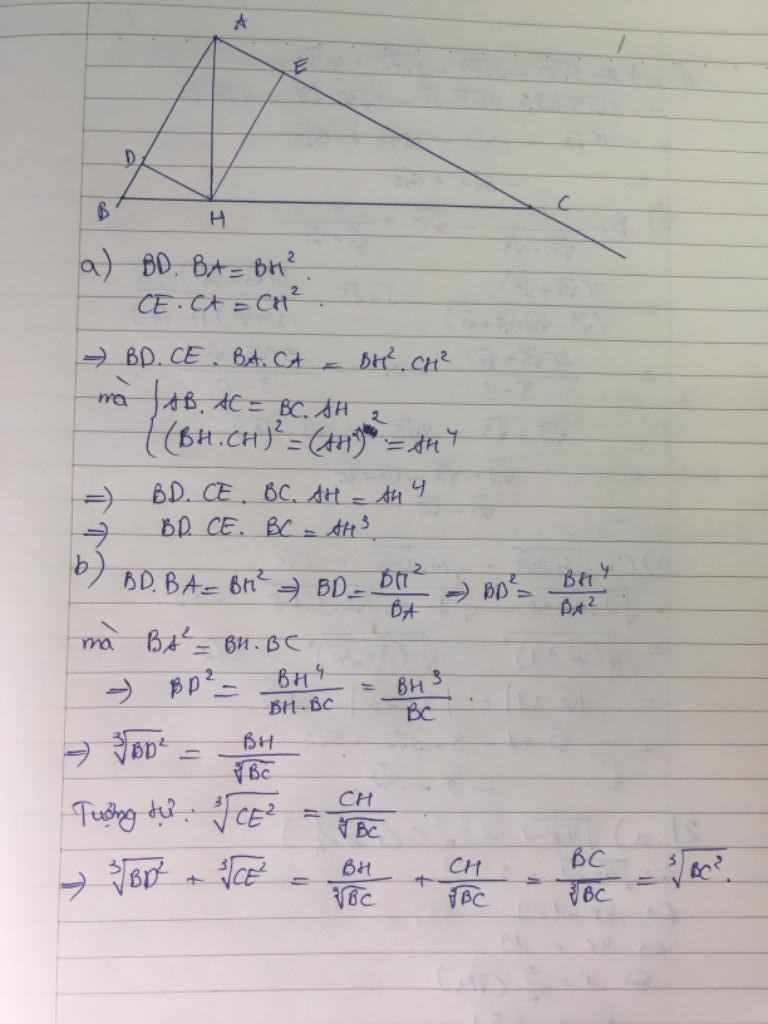 A
E
D
B
H
C
a) BD. BA = BH².
CE. CA = CH².
=> BD. CE. BA. CA = BH². CH²
mà { AB. AC = BC. AH
(BH. CH)² = (AH²)² = AH⁴
=> BD. CE. BC. AH = AH⁴
=> BD. CE. BC = AH³.
b) BD. BA = BH² => BD = BH²/BA => BD² = BH⁴/BA².
mà BA² = BH. BC
=> BD² = BH⁴/BH.BC = BH³/BC.
=> ∛BD² = BH/∛BC
Tương tự: ∛CE² = CH/∛BC
=> ∛BD² + ∛CE² = BH/∛BC + CH/∛BC = BC/∛BC = ∛BC².